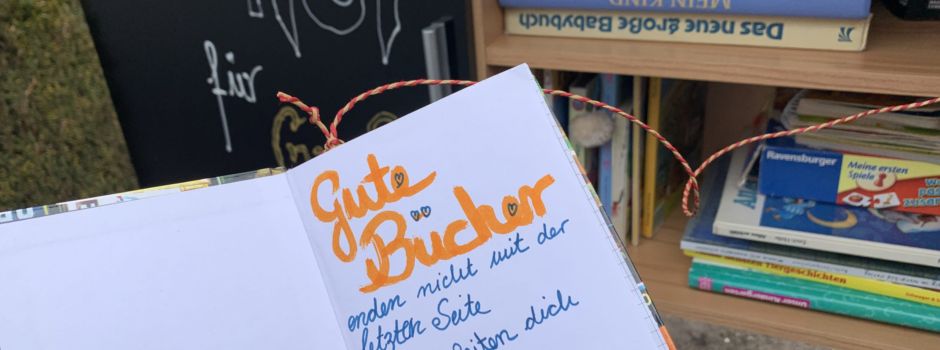 MEIN KIND
Das neue große Babybuch
für
Gute
Bücher
enden nicht mit der
letzten Seite
dich
Ravensburger
Meine ersten
Spiele
Tiergeschichten
Unser Kindergarten